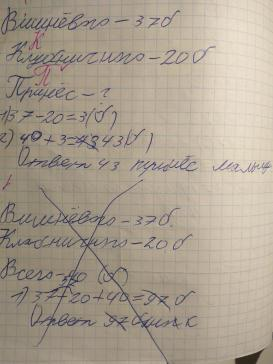 Вишнёвого – 37б
К
Клубничного – 20б
П
Принёс – ?
1) 37-20=3(б)
2) 40+3=43(б)
Ответ 43 принёс
Вишнёвого – 37б.
Клабничного – 20б
Всего – 40 (б)
1) 37+20+40=97б
Ответ 97